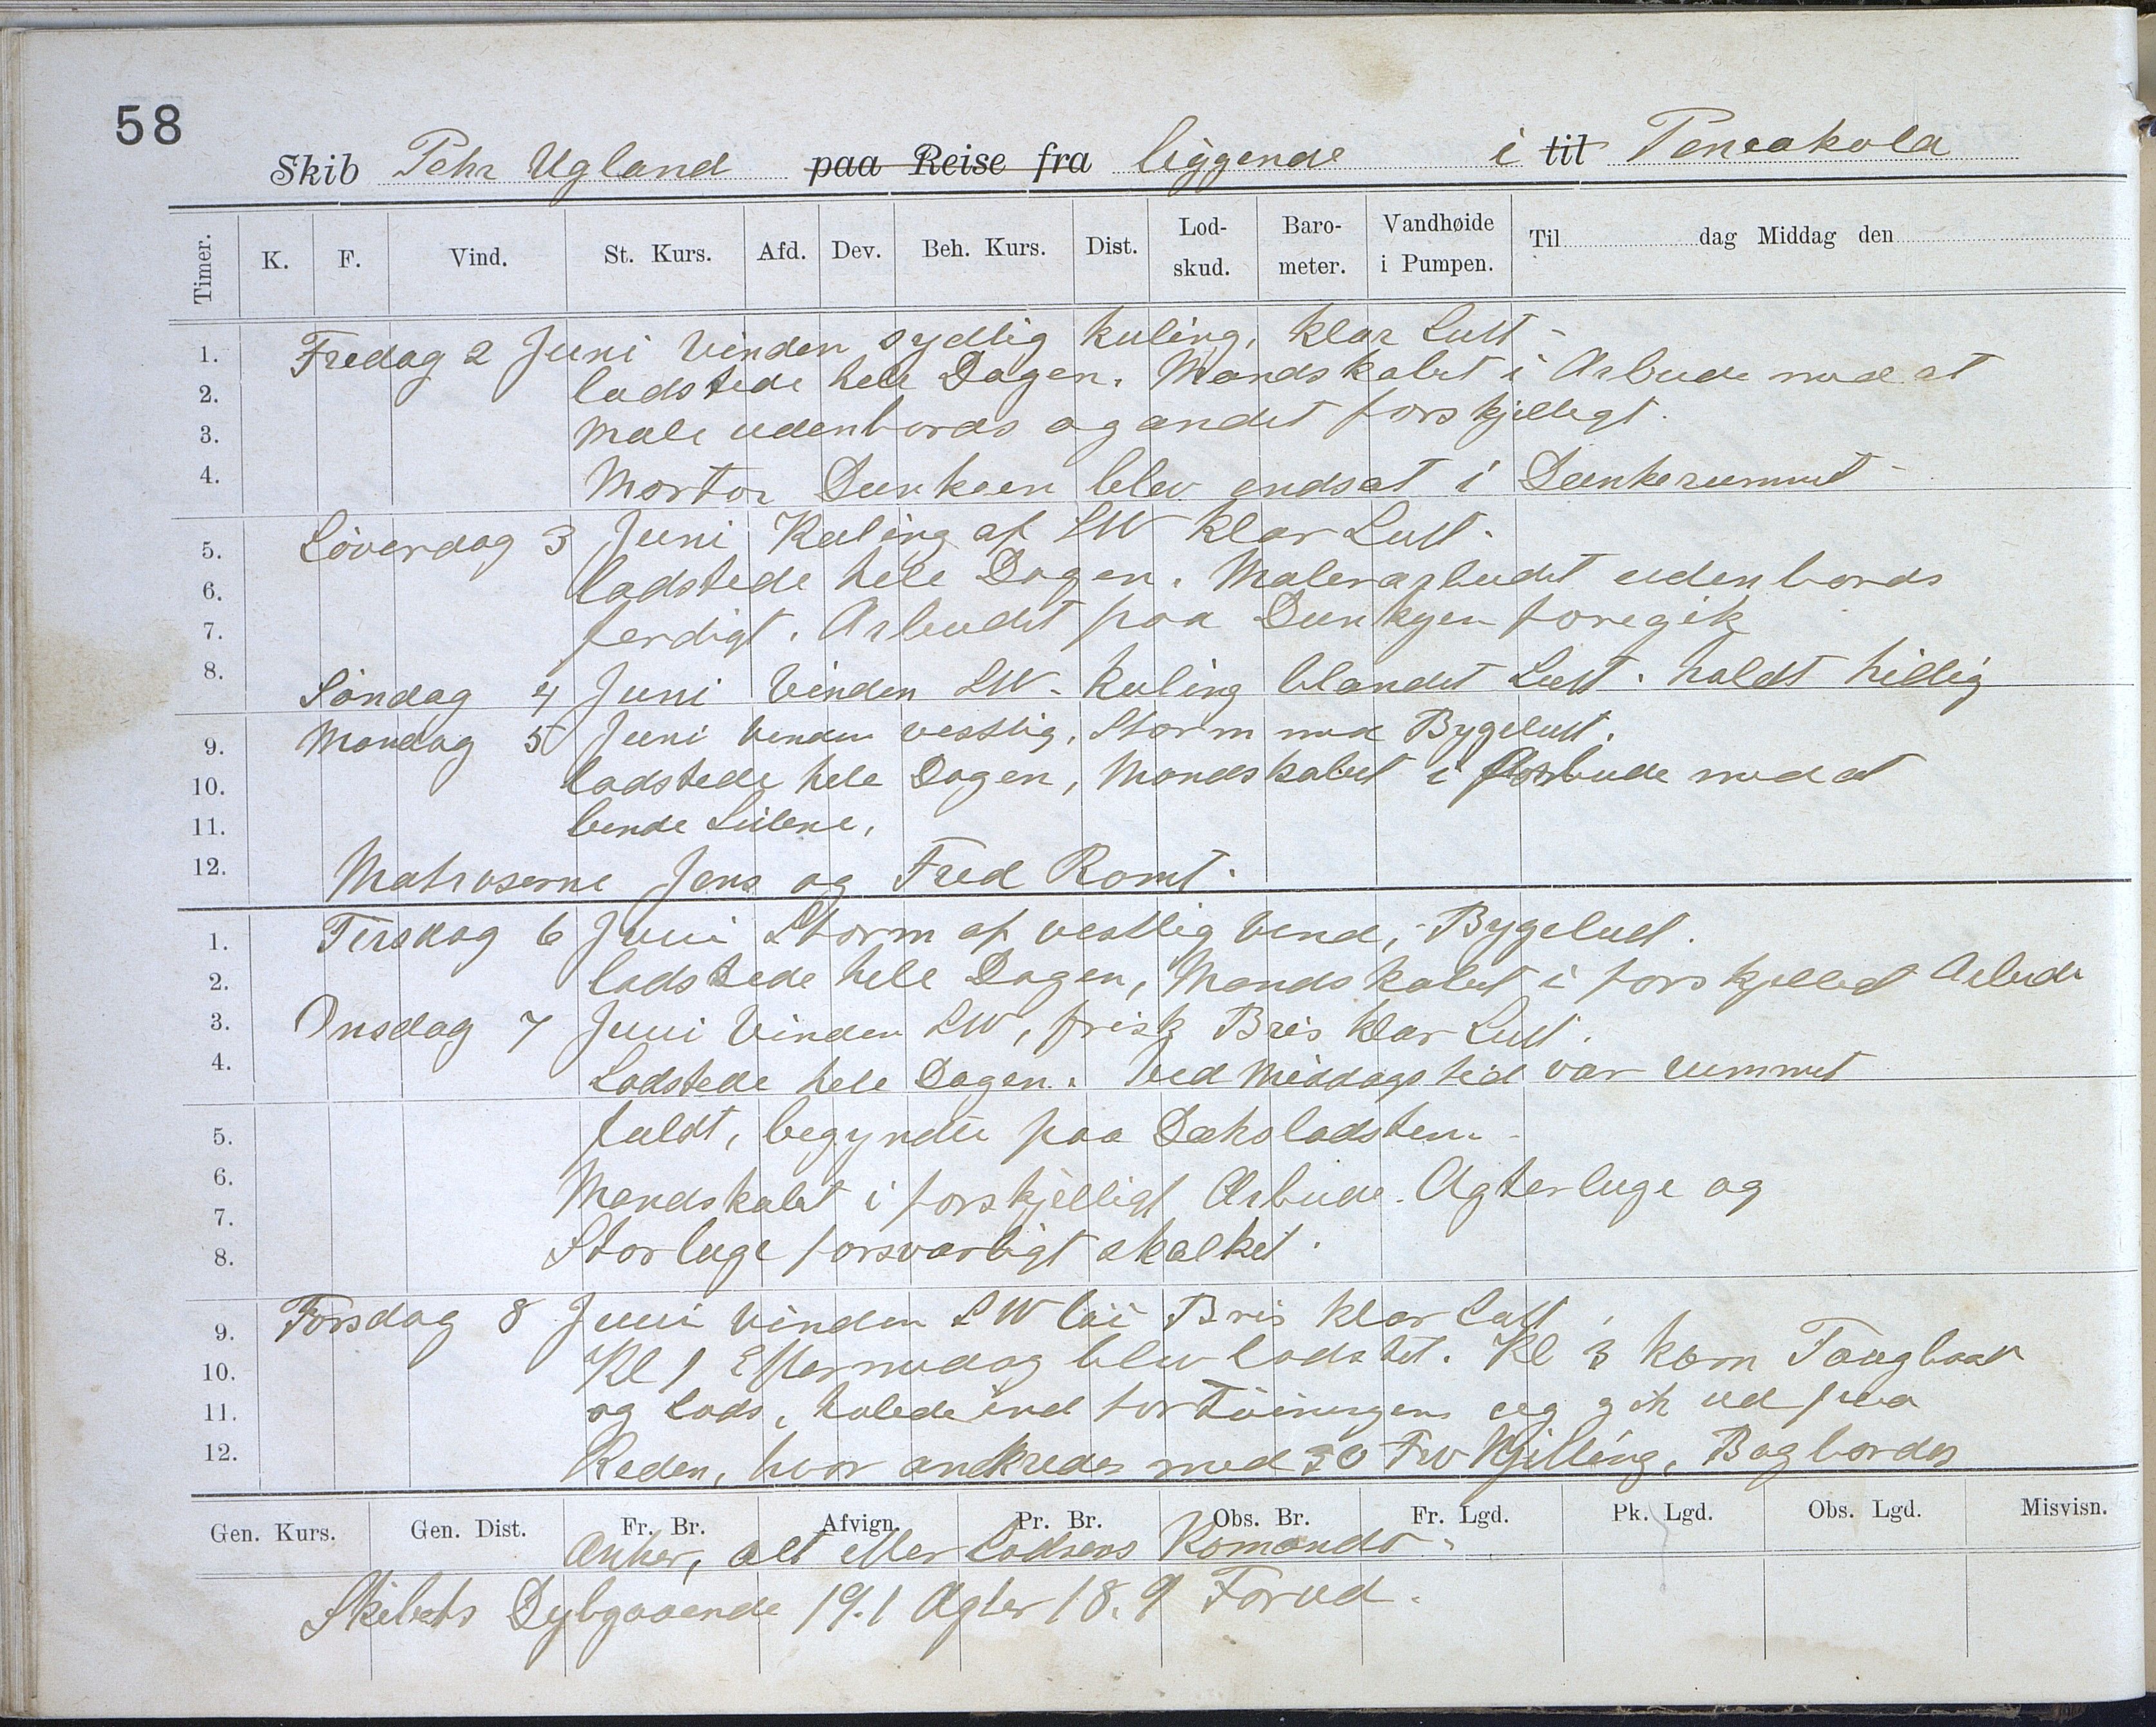 58
Skib Pehr Ugland paa Reise fra liggende i til Pensakola
Timer. K. F. Vind. St. Kurs. Afd. Dev. Beh. Kurs. Dist. Lod-skud. Baro-meter. Vandhøide i Pumpen. Til dag Middag den
1. Fredag 2 Juni Vinden sydlig kuling, klar Luft -
2. ladstede hele Dagen. Mandskabet i Arbeide med at
3. Male udenbords og andet forskjelligt.
4. Mortor Dunkeen blev endsat i Dunkerummet -
5. Löverdag 3 Juni Kuling af SW klar Luft.
6. ladstede hele Dagen. Malerarbeidet udenbords
7. ferdigt. Arbeidet paa Dunkyen foregik
8. Söndag 4 Juni Vinden SW. kuling blandet Luft. holdt hillig
9. Mandag 5 Juni Vinden vestlig, Storm med Bygeluft.
10. ladstede hele Dagen, Mandskabet i Arbeide med at
11. bende Seilene,
12. Matroserne Jens og Fred Römt.
1. Tirsdag 6 Juni Storm af vestlig Vind, Bygeluft.
2. ladstede hele Dagen, Mandskabet i forskjelligt Arbeide
3. Onsdag 7 Juni Vinden SW, frisk Bris klar Luft.
4. Ladstede hele Dagen. Ved Middagstid var rummet
5. fuldt, begyndte paa Dæksladsten -
6. Mandskabet i forskjelligt Arbeide. Agterluge og
7. Storluge forsvarligt skalket.
8.
9. Torsdag 8 Juni Vinden SW löi Bris klar Luft,
10. Kl 1 Eftermidag blev ladstet. Kl 3 kom Taugbaat
11. og Lods, halede ind fortöiningen og gik ud paa
12. Reden, hvor ankredes med 30 Fv Kjetting, Bagbordes
Gen. Kurs. Gen. Dist. Fr. Br. Afvign. Pr. Br. Obs. Br. Fr. Lgd. Pk. Lgd. Obs. Lgd. Misvisn.
Anker, alt efter Lodsens Komando.
Skibets Dybgaaende 19.1 Agter 18.9 Forud.